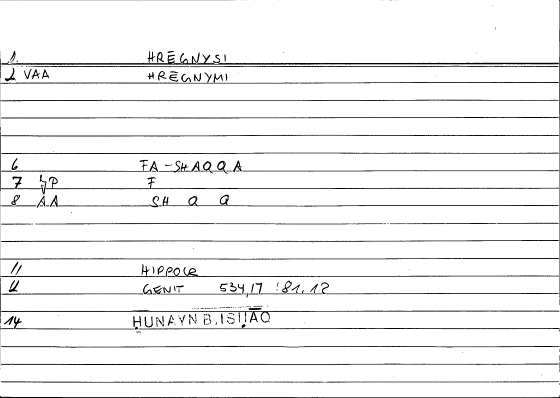 1. HRĒGNYSI
2 VAA HRĒGNYMI
6 FA-SHAQQA
7 P F
8 AA SH Q Q
11 HIPPOCR
12 GENIT 534,17 :81,12
14 ḤUNAYN B.ISḤĀQ